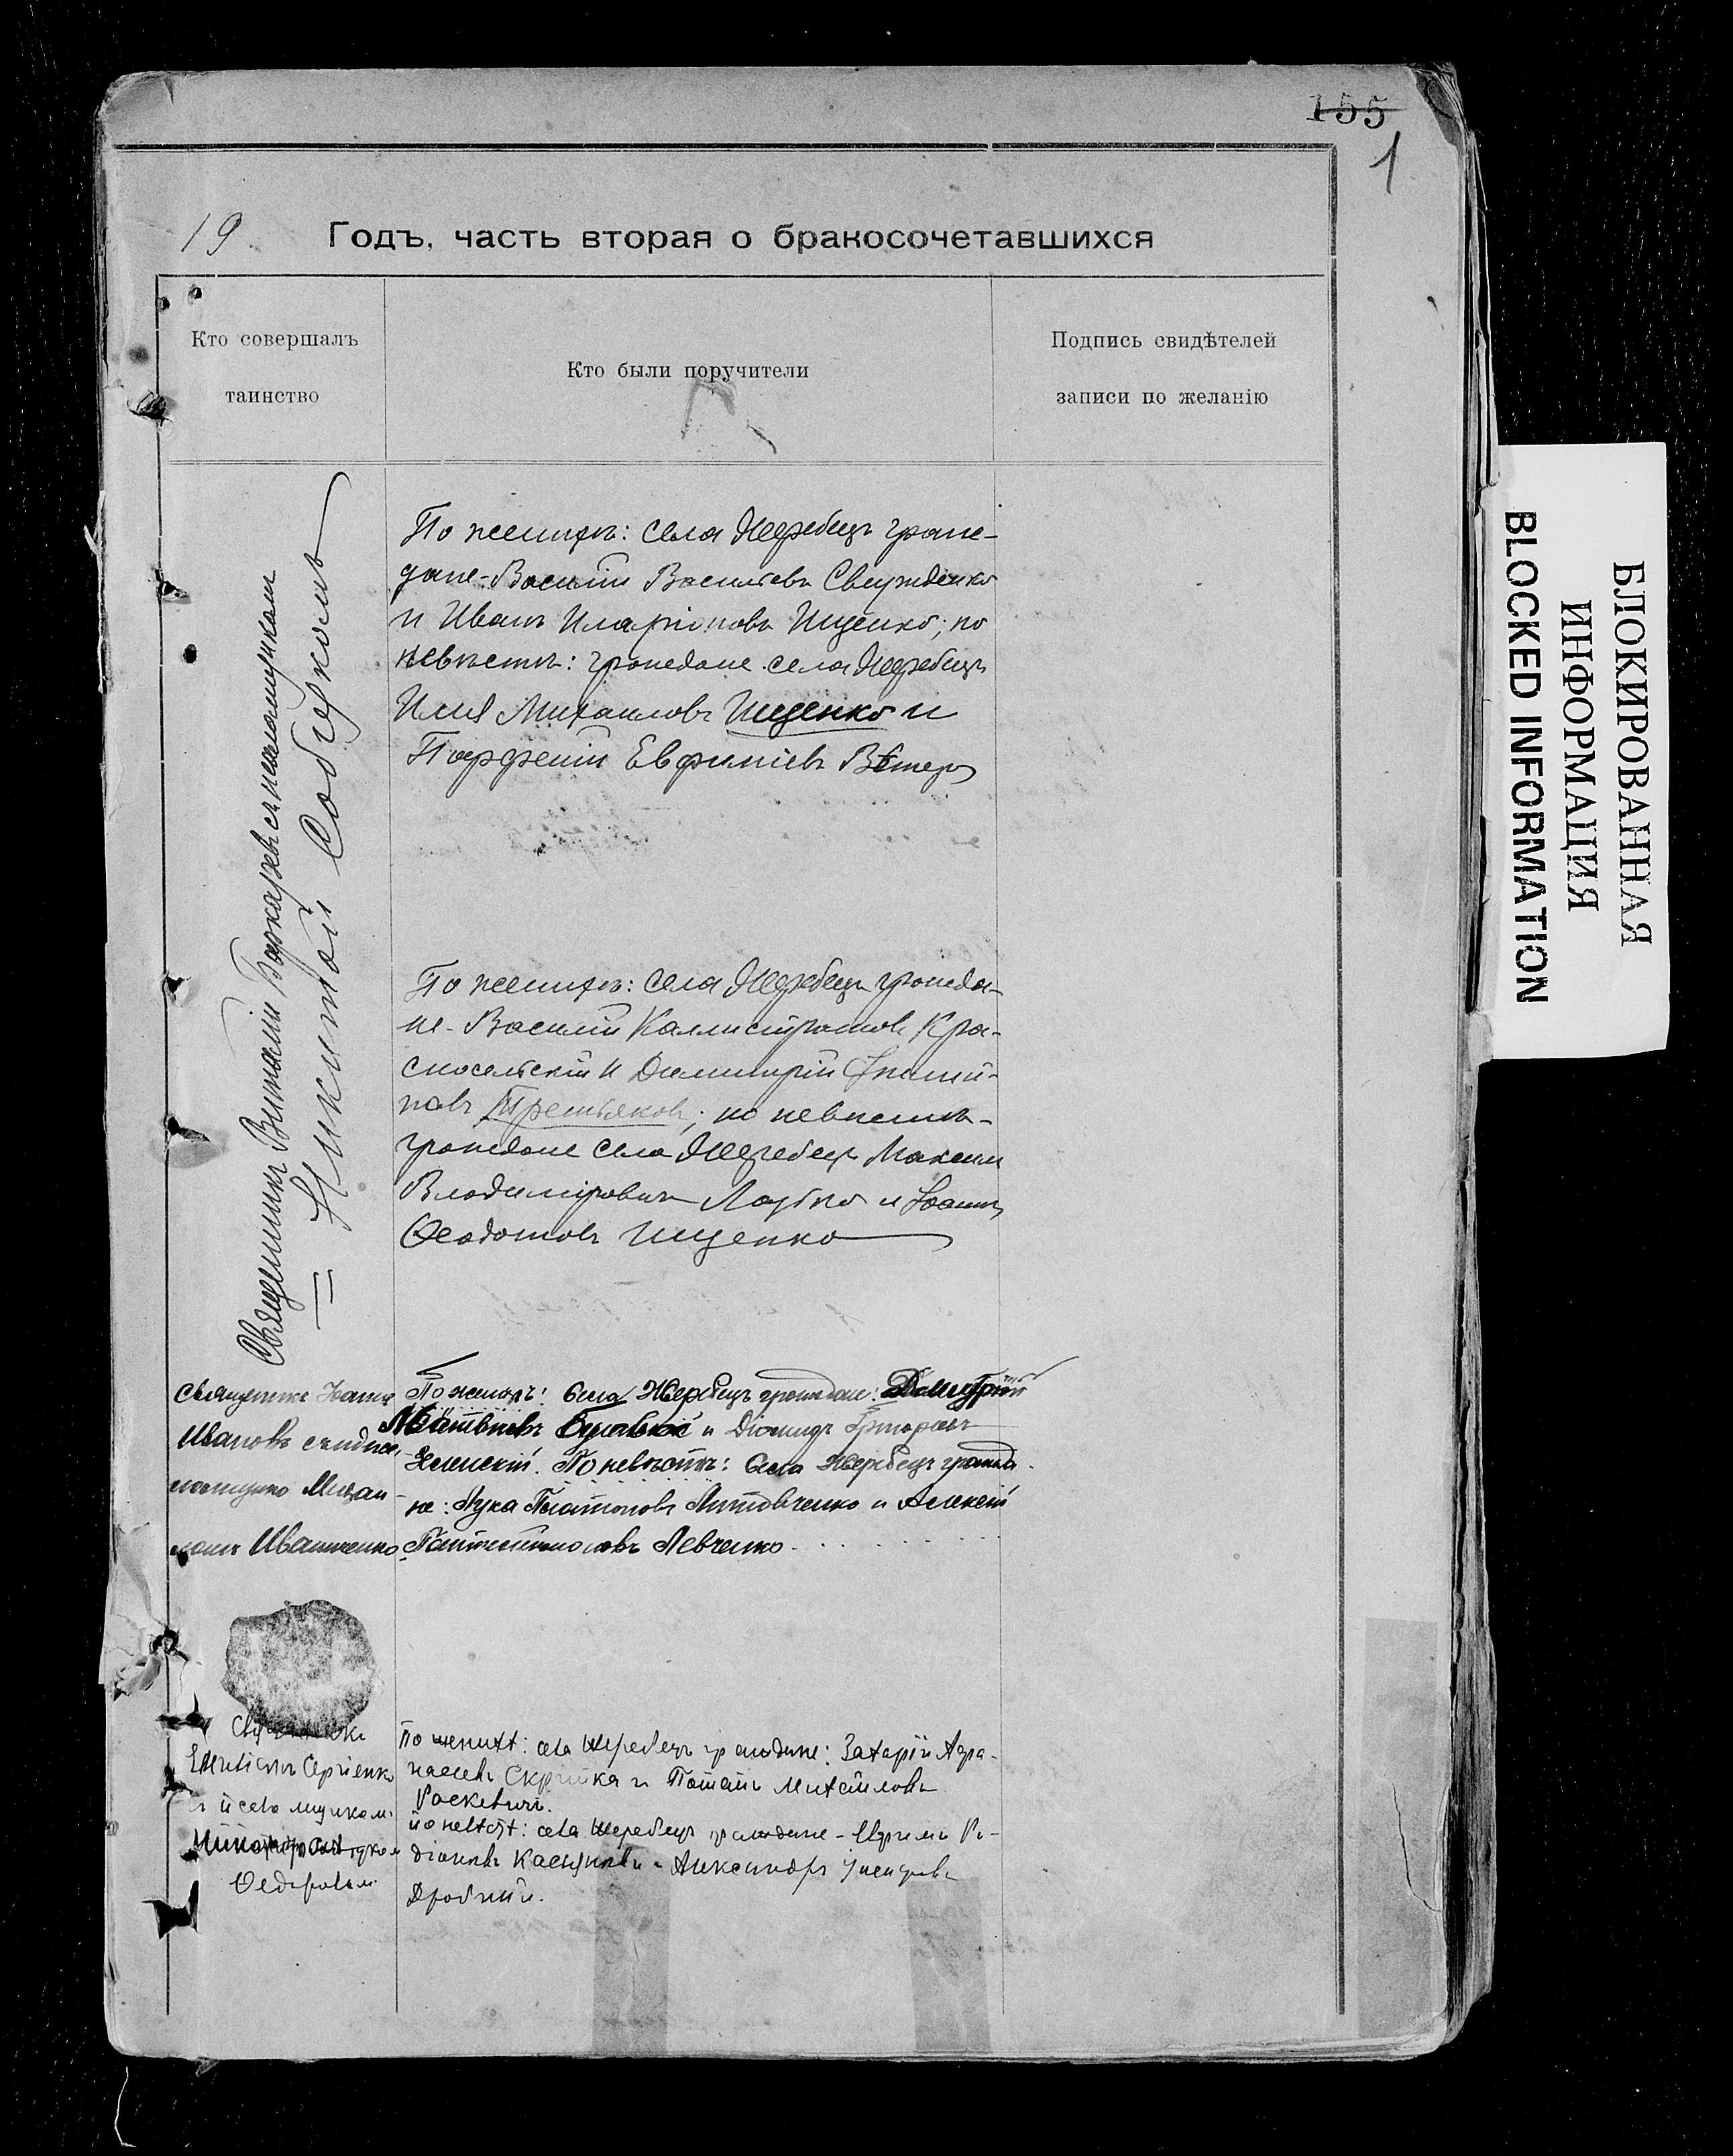 155
1
19
Годъ, часть вторая о бракосочетавшихся
Кто совершалъ
таинство
Кто были поручители
Подпись свидѣтелей
записи по желанію
Священникъ Виталій съ псаломщикомъ
Никитой
По женихѣ: села Жеребецъ граж-
дане - Василій Васильевъ
и Иванъ Иларіоновъ Ищенко; по
невѣстѣ: граждане села Жеребецъ
Илія Михаиловъ Ищенко и
Порфирій Евфиміевъ Вѣтеръ
По женихѣ: села Жеребецъ гражда-
не - Василій Каллистратовъ Кра-
сносельскій и Димитрій
Третьяковъ; по невѣстѣ -
граждане села Жеребецъ Максим
Владиміровичъ и Іоаннъ
Ѳеодотовъ Ищенко
Священникъ Іоаннъ
Ивановъ съ
Иващенко
По женихѣ: Села Жеребецъ граждане: Димитрій
Матвѣевъ и Діомидъ Григорьевъ
Зеленскій. По невѣстѣ: Села Жеребецъ гражда-
не: Лука Платоновъ Литовченко и Алексій
Пантелеимоновъ Левченко
Сергіенко
Ѳедоровымъ
По женихѣ: села Жеребецъ граждане: Захарій Аѳа-
насіевъ Скрипка и Потапъ Михайловъ
Раскевичъ.
По невѣстѣ: села Жеребецъ граждане - Ро-
діоновъ и Александръ
Дробный.
БЛОКИРОВАННАЯ
ИНФОРМАЦИЯ
BLOCKED INFORMATION